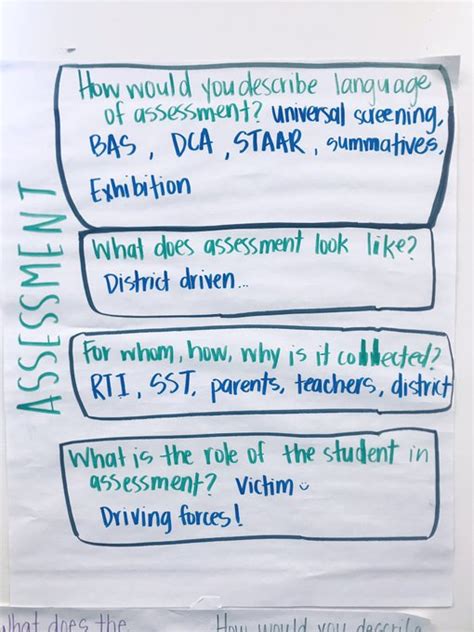 ASSESSMENT
How would you describe language
of assessment? universal screening,
BAS, DCA, STAAR, summatives,
Exhibition
What does assessment look like?
District driven...
For whom, how, why is it collected?
RTI, SST, parents, teachers, district
What is the role of the student in
assessment? Victim
Driving forces!
What does the
How would you describe